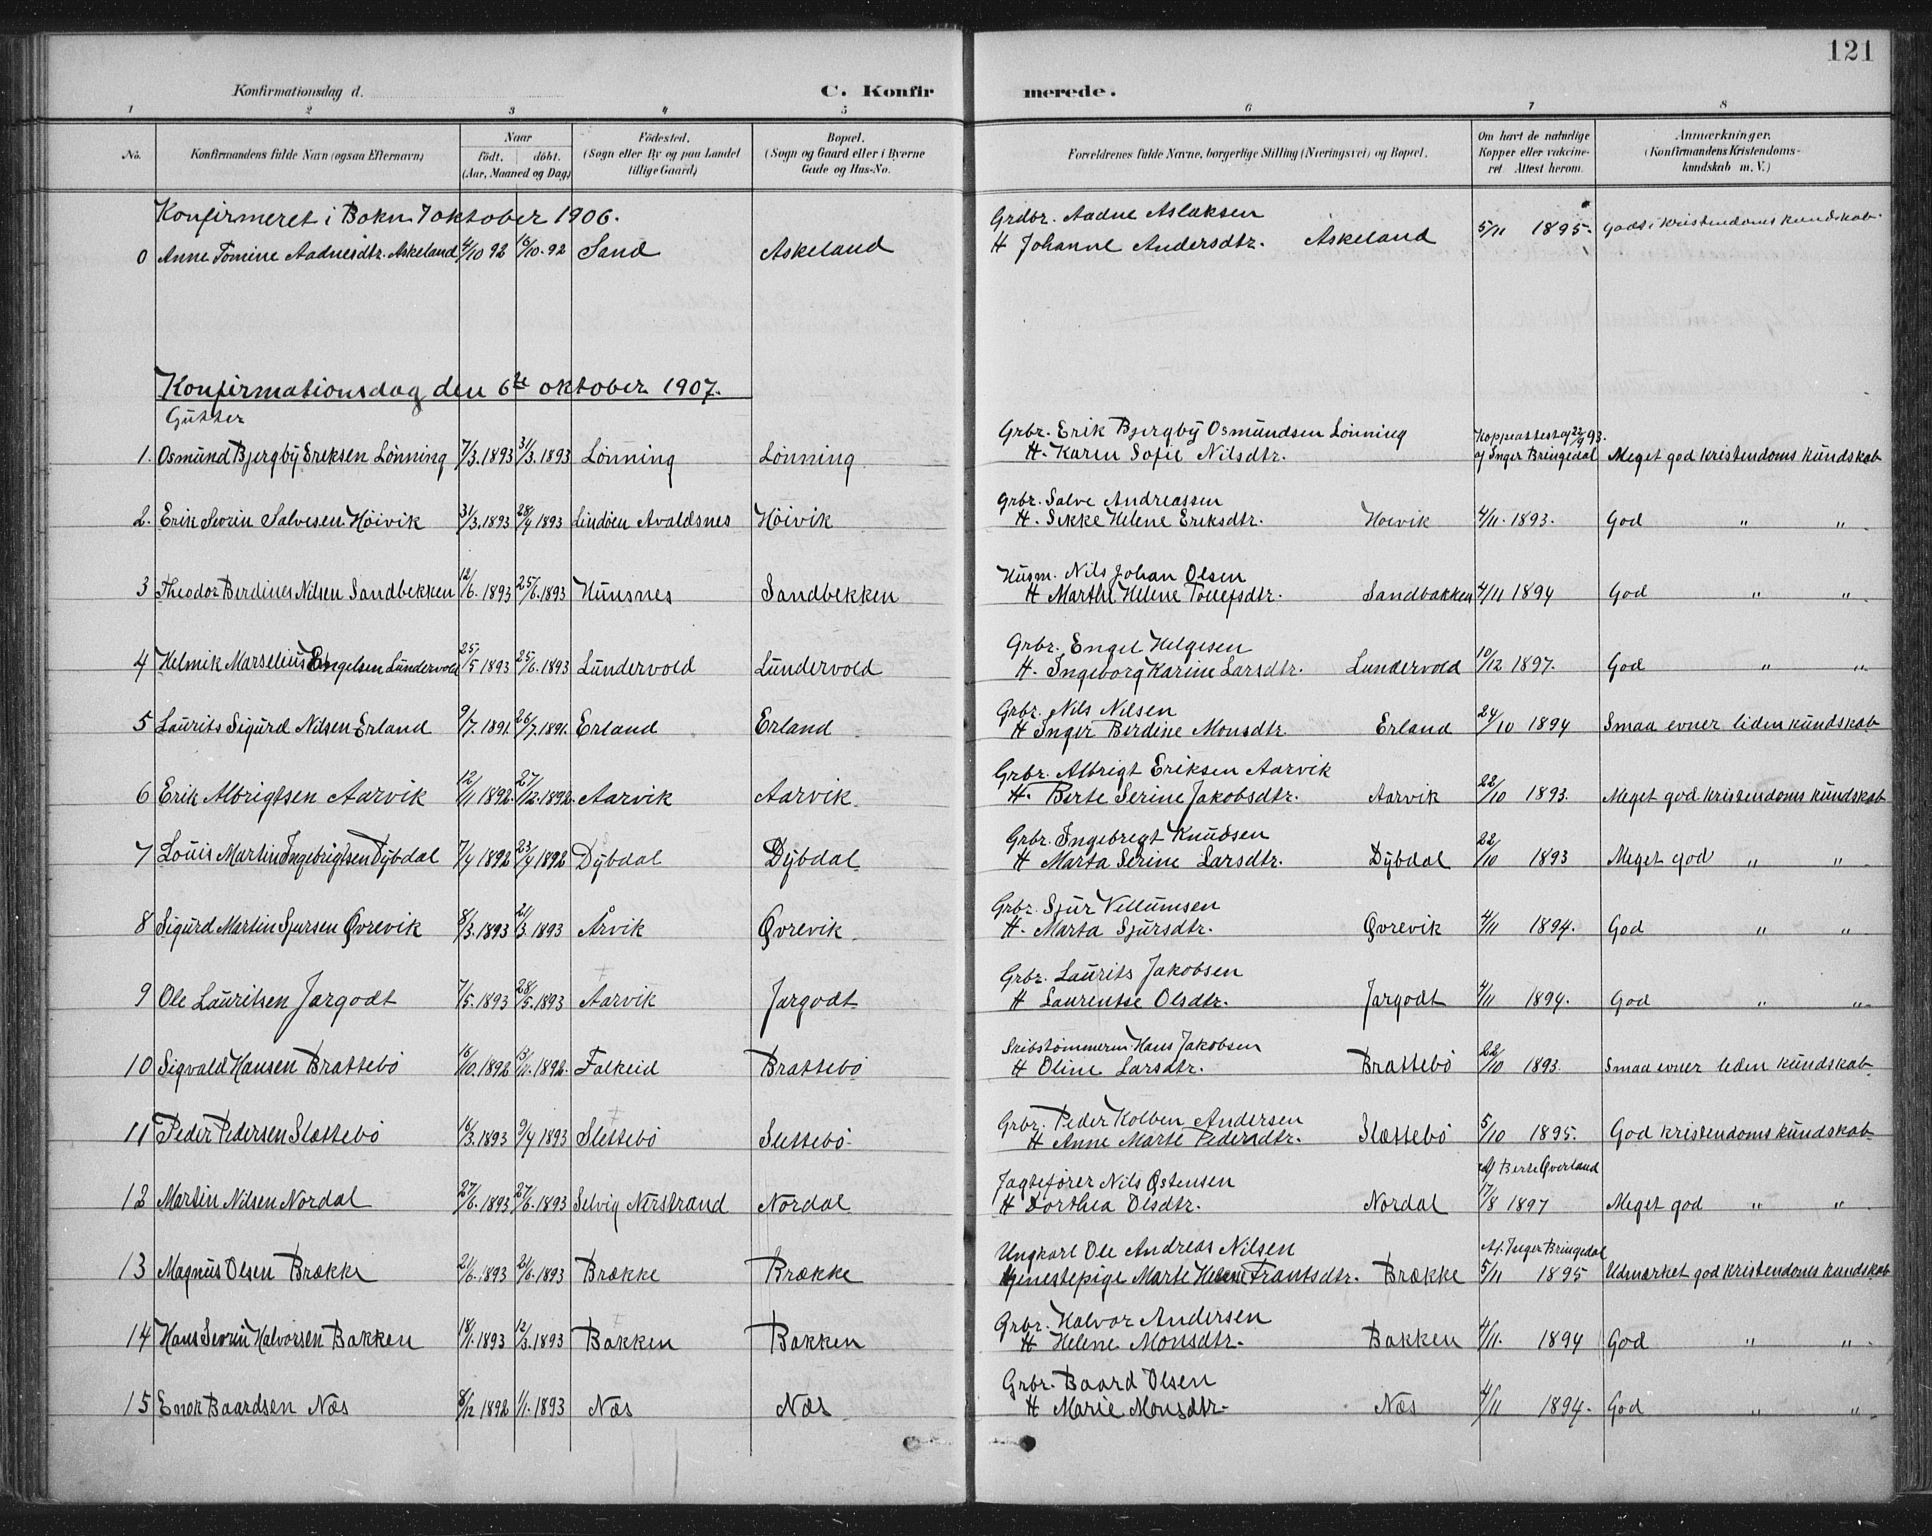 121
Konfirmationsdag d.
C. Konfirmerede.
1 2 3 4 5 6 7 8
No. Konfirmandens fulde Navn (ogsaa Efternavn) Naar født. døbt. (Aar, Maaned og Dag) Fødested. (Sogn eller By og paa Landet tillige Gaard) Bopæl. (Sogn og Gaard eller i Byerne Gade og Hus-No. Forældrenes fulde Navne, borgerlige Stilling (Næringsvei) og Bopæl. Om havt de naturlige Kopper eller vakcineret Attest herom. Anmærkninger. (Konfirmandens Kristendomskundskab m. V.)
Konfirmeret i Bokn 7 oktober 1906.
Grdbr. Aadne Aslaksen
0 Anne Tomine Aadnesdtr. Askeland 4/10 92 16/10. 92 Sand Askeland H Johanne Andersdtr. Askeland 5/11 1895. Godt i Kristendomskundskab.
Konfirmationsdag den 6te oktober 1907.
Gutter
Grbr. Erik Bjergby Osmundsen Lønning Koppeattest af 22/9 93.
1. Osmund Bjergby Eriksen Lønning 7/3. 1893 31/3. 1893 Lønning Lønning H. Karen Sofie Nilsdtr. af Inger Bringedal Meget god kristendoms kundskab
Grbr. Salve Andreassen
2. Erik Sevrin Salvesen Høivik 31/3. 1893 28/4 1893 Lindøen Avaldsnes Høivik H. Sikke Helene Eriksdtr. Høivik 4/11. 1893. God " "
Husm. Nils Johan Olsen
3 Theodor Berdines Nilsen Sandbekken 12/6. 1893 25/6. 1893 Hunsnes Sandbekken H Marthe Helene Tollefsdtr. Sandbakken 4/11 1894 God " "
Grbr. Engel Helgesen
4 Helmik Marselius Engelsen Lundervold 25/5 1893 25/6. 1893 Lundervold Lundervold H. Ingeborg Karine Larsdtr. Lundervold 10/12 1897. God " "
Grbr. Nils Nilsen
5 Laurits Sigurd Nilsen Erland 9/7. 1891. 26/7. 1891. Erland Erland H Inger Berdine Monsdtr Erland 24/10 1894 Smaa evner liden kundskab
Grbr. Albrigt Eriksen Aarvik
6 Erik Albrigtsen Aarvik 12/11 1892. 27/12. 1892. Aarvik Aarvik. H. Berte Serine Jakobsdtr. Aarvik 22/10 1893. Meget god kristendoms kundskab
Grbr. Ingebregt Knudsen
7 Louis Martin Ingebrigtsen Dybdal 7/4 1892 23/4 1892 Dybdal Dybdal. H Marta Serine Larsdtr. Dybdal 22/10 1893 Meget god " "
Grbr. Sjur Vellumsen
8 Sigurd Martin Sjursen Øvrevik 8/3. 1893 21/3. 1893 Årvik Øvrevik. H. Marta Sjursdtr. Øvrevik 4/11 1894. God " "
Grbr. Laurits Jakobsen
9 Ole Lauritsen Jargodt 7/5. 1893 28/5. 1893 Aarvik Jargodt H Laurentse Olsdtr. Jargodt 4/11 1894. God " "
Skibstømmerm. Hans Jakobsen
10 Sigvald Hansen Brattebø 16/10. 1892 13/11. 1892. Falkeid Brattebø H Oline Larsdtr. Brattebø 22/10 1893. Smaa evner liden kundskab
Grbr. Peder Kolben Andersen
11 Peder Pedersen Slættebø 16/3. 1893 9/4 1893 Slettebø Slettebø. H Anne Marte Pedersdtr. Slættebø 5/10 1895. God kristendoms kundskab
Jagtefører Nils Østensen af Berte Øverland
12 Martin Nilsen Nordal 27/6. 1893 27/6. 1893 Selvig Nerstrand Nordal. H Dorthea Olsdtr. Nordal 17/8 1897 Meget god " "
Ungkarl Ole Andreas Nilsen Af. Inger Bringedal
13 Magnus Olsen Brække 21/6. 1893 21/6. 1893 Brække Brække Tjenestepige Marte Helene Frantsdtr. Brække 5/11 1895 Udmærket god kristendoms kundskab
Grbr. Halvor Andersen
14 Hans Sevrin Halvorsen Bakken 18/1. 1893 12/3. 1893 Bakken Bakken H Helene Monsdtr. Bakken 4/11. 1894 God " "
Grbr. Baard Olsen
15 Enok Baardsen Næs 8/12 1892 1/1. 1893 Næs Næs H Marie Monsdtr. Næs 4/11 1894. God " "